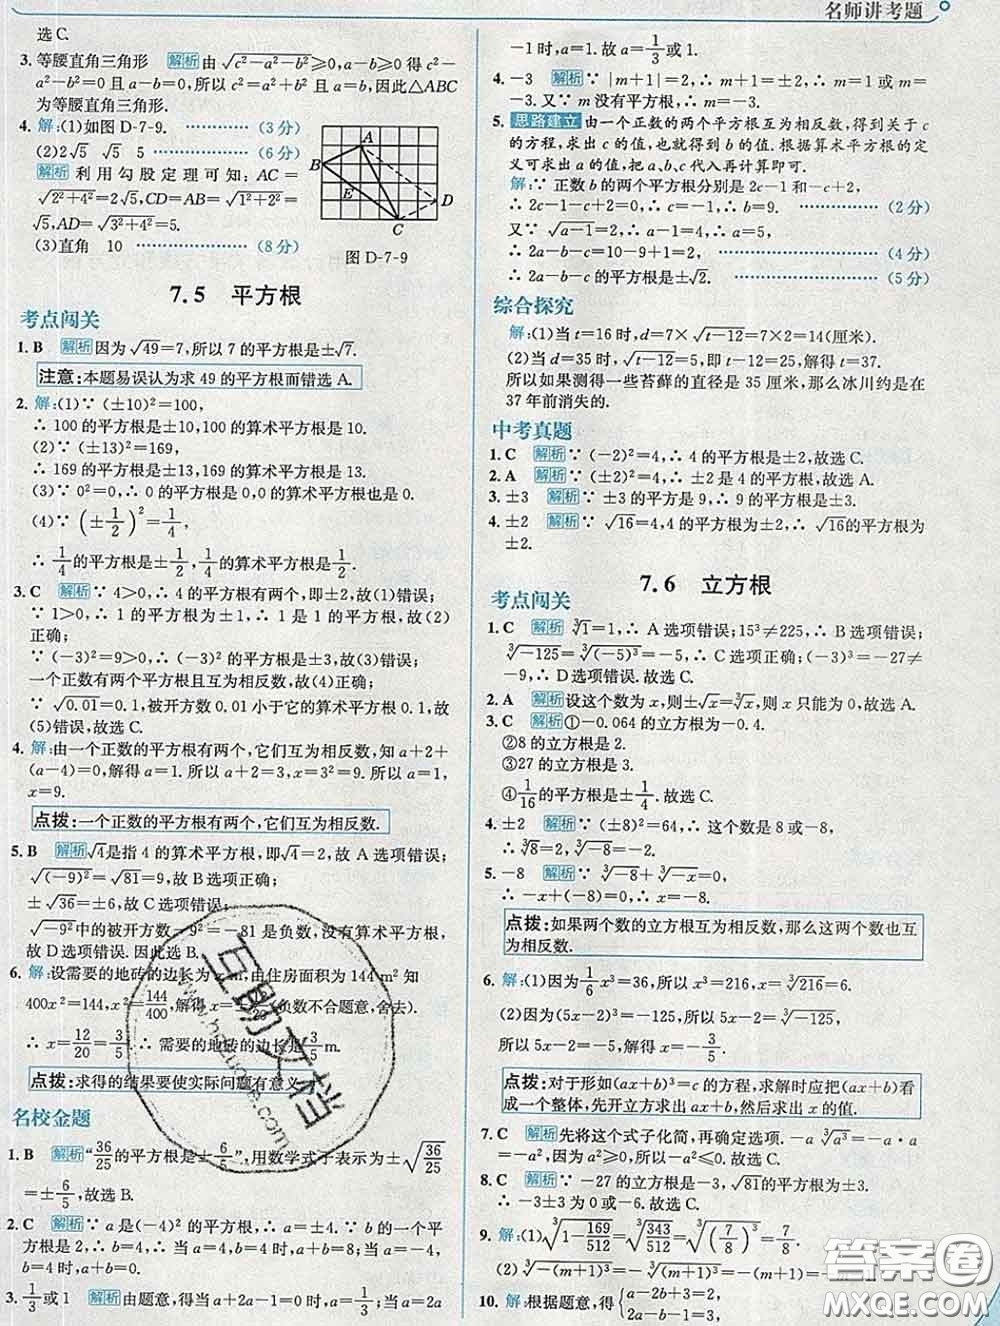 名师讲考题
选C.
3. 等腰直角三角形 解析 由√(c²-a²-b²)≥0,a-b≥0得c²-
a²-b²=0且a-b=0,所以c²=a²+b²且a=b,因此△ABC
为等腰直角三角形.
4. 解:(1)如图D-7-9. ……………(3分)
(2)2√5 √5 5 ……………(6分)
解析 利用勾股定理可知:AC=
√(2²+4²)=2√5,CD=AB=√(1²+2²)=
√5,AD=√(3²+4²)=5.
(3)直角 10 ……………(8分)
A
B
E
D
C
图D-7-9
7.5 平方根
考点闯关
1. B 解析 因为√49=7,所以7的平方根是±√7.
注意:本题易误认为求49的平方根而错选A.
2. 解:(1)∵(±10)²=100,
∴100的平方根是±10,100的算术平方根是10.
(2)∵(±13)²=169,
∴169的平方根是±13,169的算术平方根是13.
(3)∵0²=0,∴0的平方根是0,0的算术平方根也是0.
(4)∵(±1/2)²=1/4,
∴1/4的平方根是±1/2,1/4的算术平方根是1/2.
3. C 解析 ∵4>0,∴4的平方根有两个,即±2,故(1)错误;
∵1>0,∴1的平方根是±1,∴1是1的平方根,故(2)
正确;
∵(-3)²=9>0,∴(-3)²的平方根是±3,故(3)错误;
一个正数有两个平方根且互为相反数,故(4)正确;
∵√0.01=0.1,被开方数0.01小于它的算术平方根0.1,故
(5)错误.故选C.
4. 解:由一个正数的平方根有两个,它们互为相反数,可知a+2+
(a-4)=0,解得a=1.所以a+2=3,3²=9.所以a=1,
x=9.
点拨:一个正数的平方根有两个,它们互为相反数.
5. B 解析 √4是指4的算术平方根,即√4=2,故A选项错误;
√(-9)²=√81=9,故B选项正确;
±√36=±6,故C选项错误;
√-9²中的被开方数-9²=-81是负数,没有算术平方根,
故D选项错误.因此选B.
6. 解:设需要的地砖的边长为x m,由住房面积为144 m²知
400x²=144,x²=144/400,解得x=±12/20(负数不合题意,舍去).
∴x=12/20=3/5.∴需要的地砖的边长是3/5 m.
点拨:求得的结果要使实际问题有意义.
名校金题
1. B 解析 “36/25的平方根是±6/5”,用数学式子表示为±√(36/25)
=±6/5,故选B.
2. C 解析 ∵a是(-4)²的平方根,∴a=±4.∵b的一个平
方根是2,∴b=4.∴当a=4,b=4时,a+b=8;当a=-4,
b=4时,a+b=0.故选C.
3. 1/3或1 解析 由题意,得当a+2a-1=0时,a=1/3;当a=2a
-1时,a=1.故a=1/3或1.
4. -3 解析 ∵|m+1|=2,∴m+1=±2,∴m=1或m=
-3.又∵m没有平方根,∴m=-3.
5. 思路建立 由一个正数的两个平方根互为相反数,得到关于c
的方程,求出c的值,也就得到b的值.根据算术平方根的定
义可求出a的值,把a,b,c代入再计算即可.
解:∵正数b的两个平方根分别是2c-1和-c+2,
∴2c-1-c+2=0,∴c=-1,∴b=9. ……………(2分)
又∵√(a-1)=2,∴a-1=4,∴a=5.
∴2a-b-c=10-9+1=2. ……………(4分)
∴2a-b-c的平方根是±√2. ……………(5分)
综合探究
解:(1)当t=16时,d=7×√(t-12)=7×2=14(厘米).
(2)当d=35时,√(t-12)=5,即t-12=25,解得t=37.
所以如果测得一些苔藓的直径是35厘米,那么冰川约是在
37年前消失的.
中考真题
1. C 解析 ∵(-2)²=4,∴4的平方根是±2,故选C.
2. A 解析 ∵(±2)²=4,∴±2是4的平方根,故选A.
3. ±3 解析 ∵±3的平方是9,∴9的平方根是±3.
4. ±2 解析 ∵√16=4,4的平方根为±2,∴√16的平方根为
±2.
7.6 立方根
考点闯关
1. C 解析 ∵³√1=1,∴A选项错误;15³≠225,∴B选项错误;
³√-125=³√(-5)³=-5,∴C选项正确;(-3)³=-27≠
-9,∴D选项错误.故选C.
2. A 解析 设这个数为x,则±√x=³√x,则x只能为0,故选A.
3. C 解析 ①-0.064的立方根为-0.4.
②8的立方根是2.
③27的立方根是3.
④1/16的平方根是±1/4.故选C.
4. ±2 解析 ∵(±8)²=64,∴这个数是8或-8,
∴³√8=2,³√-8=-2.
5. -8 解析 ∵³√-8+³√-x=0,
∴-x+(-8)=0,∴x=-8.
点拨:如果两个数的立方根互为相反数,那么这两个数也互
为相反数.
6. 解:(1)因为1/6x³=36,所以x³=216,所以x=³√216=6.
(2)因为(5x-2)³=-125,所以5x-2=³√-125,
所以5x-2=-5,解得x=-3/5.
点拨:对于形如(ax+b)³=c的方程,求解时应把(ax+b)看
成一个整体,先开立方求出ax+b,然后求出x的值.
7. C 解析 先将这个式子化简,再确定选项.-a³√a³=-a·a
=-a²,因为a²≥0,所以-a²≤0.故选C.
8. C 解析 ∵-27的立方根是-3,√81的平方根是±3,
∴-3±3为0或-6.故选C.
9. 解:(1)³√(1-169/512)=³√(343/512)=³√(7/8)³=7/8.
(2)³√-(m+1)³=-³√(m+1)³=-m-1.
10. 解:根据题意,得{a-b+3=2,
2a-b-1=3,
互助文档
www.hzuone.com
答案圈
MXQE.COM